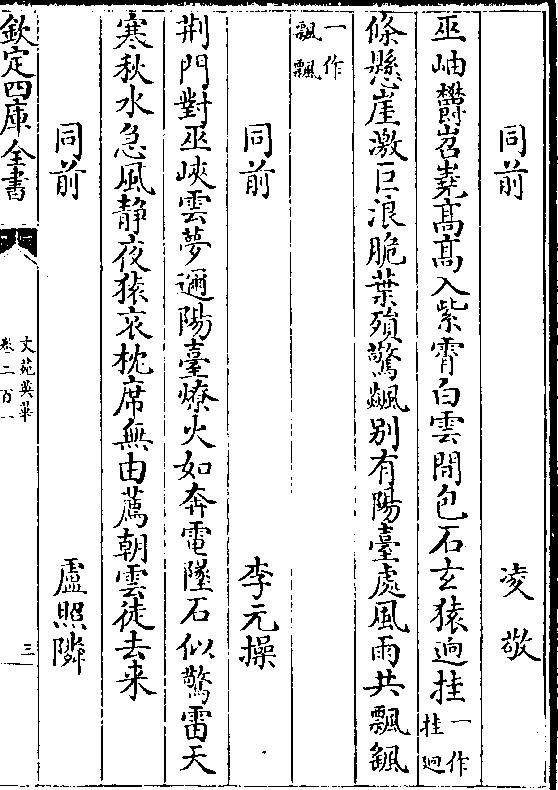 同前　凌敬
巫岫欝岧嶤高高入紫霄白雲間包石玄猿迥挂一作挂迥
條懸崖激巨浪脆葉殞驚飇别有陽臺處風雨共飄颻
一作飄飄
同前　李元操
荆門對巫峽雲夢邇陽臺燎火如奔電墜石似驚雷天
寒秋水急風静夜猿哀枕席無由薦朝雲徒去来
同前　盧照隣
欽定四庫全書
文苑英華
卷二百一
三